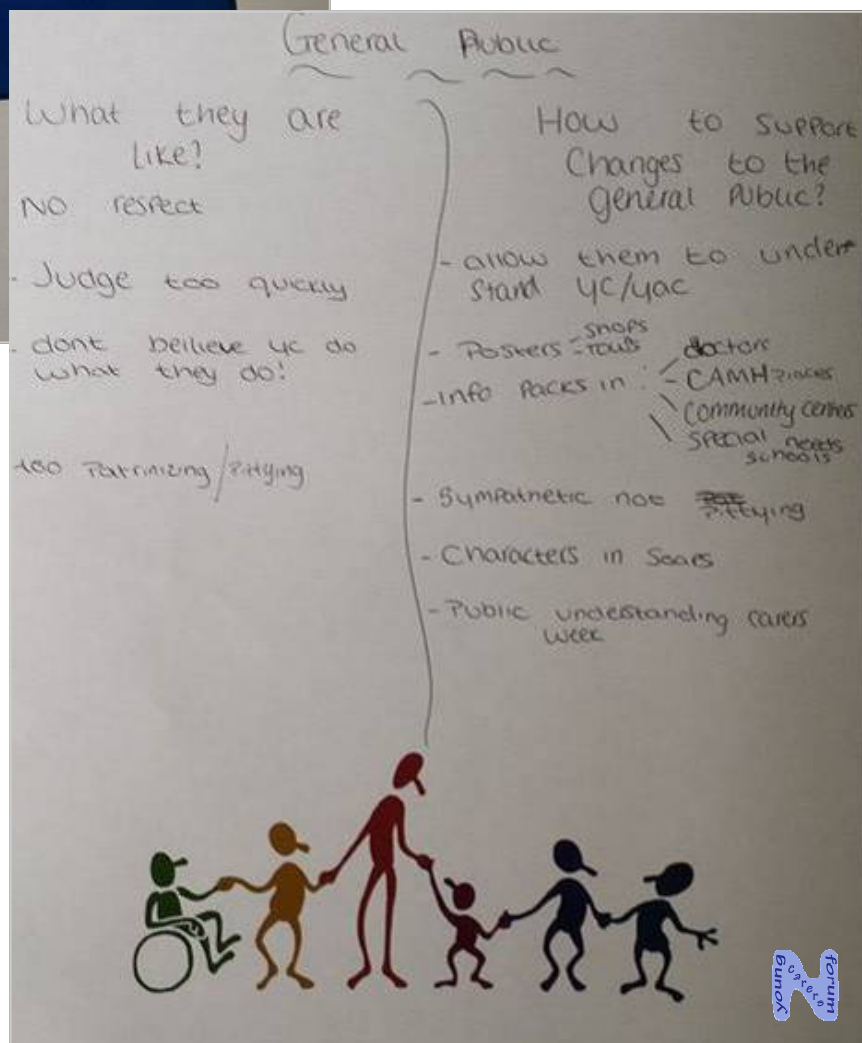 General Public
What they are
like?
No respect
- Judge too quickly
- dont beilieve yc do
what they do!
too Patrinizing / Pittying
How to support
Changes to the
general Public?
- allow them to under
stand yc/yac
- Posters - shops
- Info Packs in : doctors
- CAMH Places
Community centers
Special needs
schools
- Sympathetic not Pittying
- Characters in Soaps
- Public understanding carers
week
young carers forum